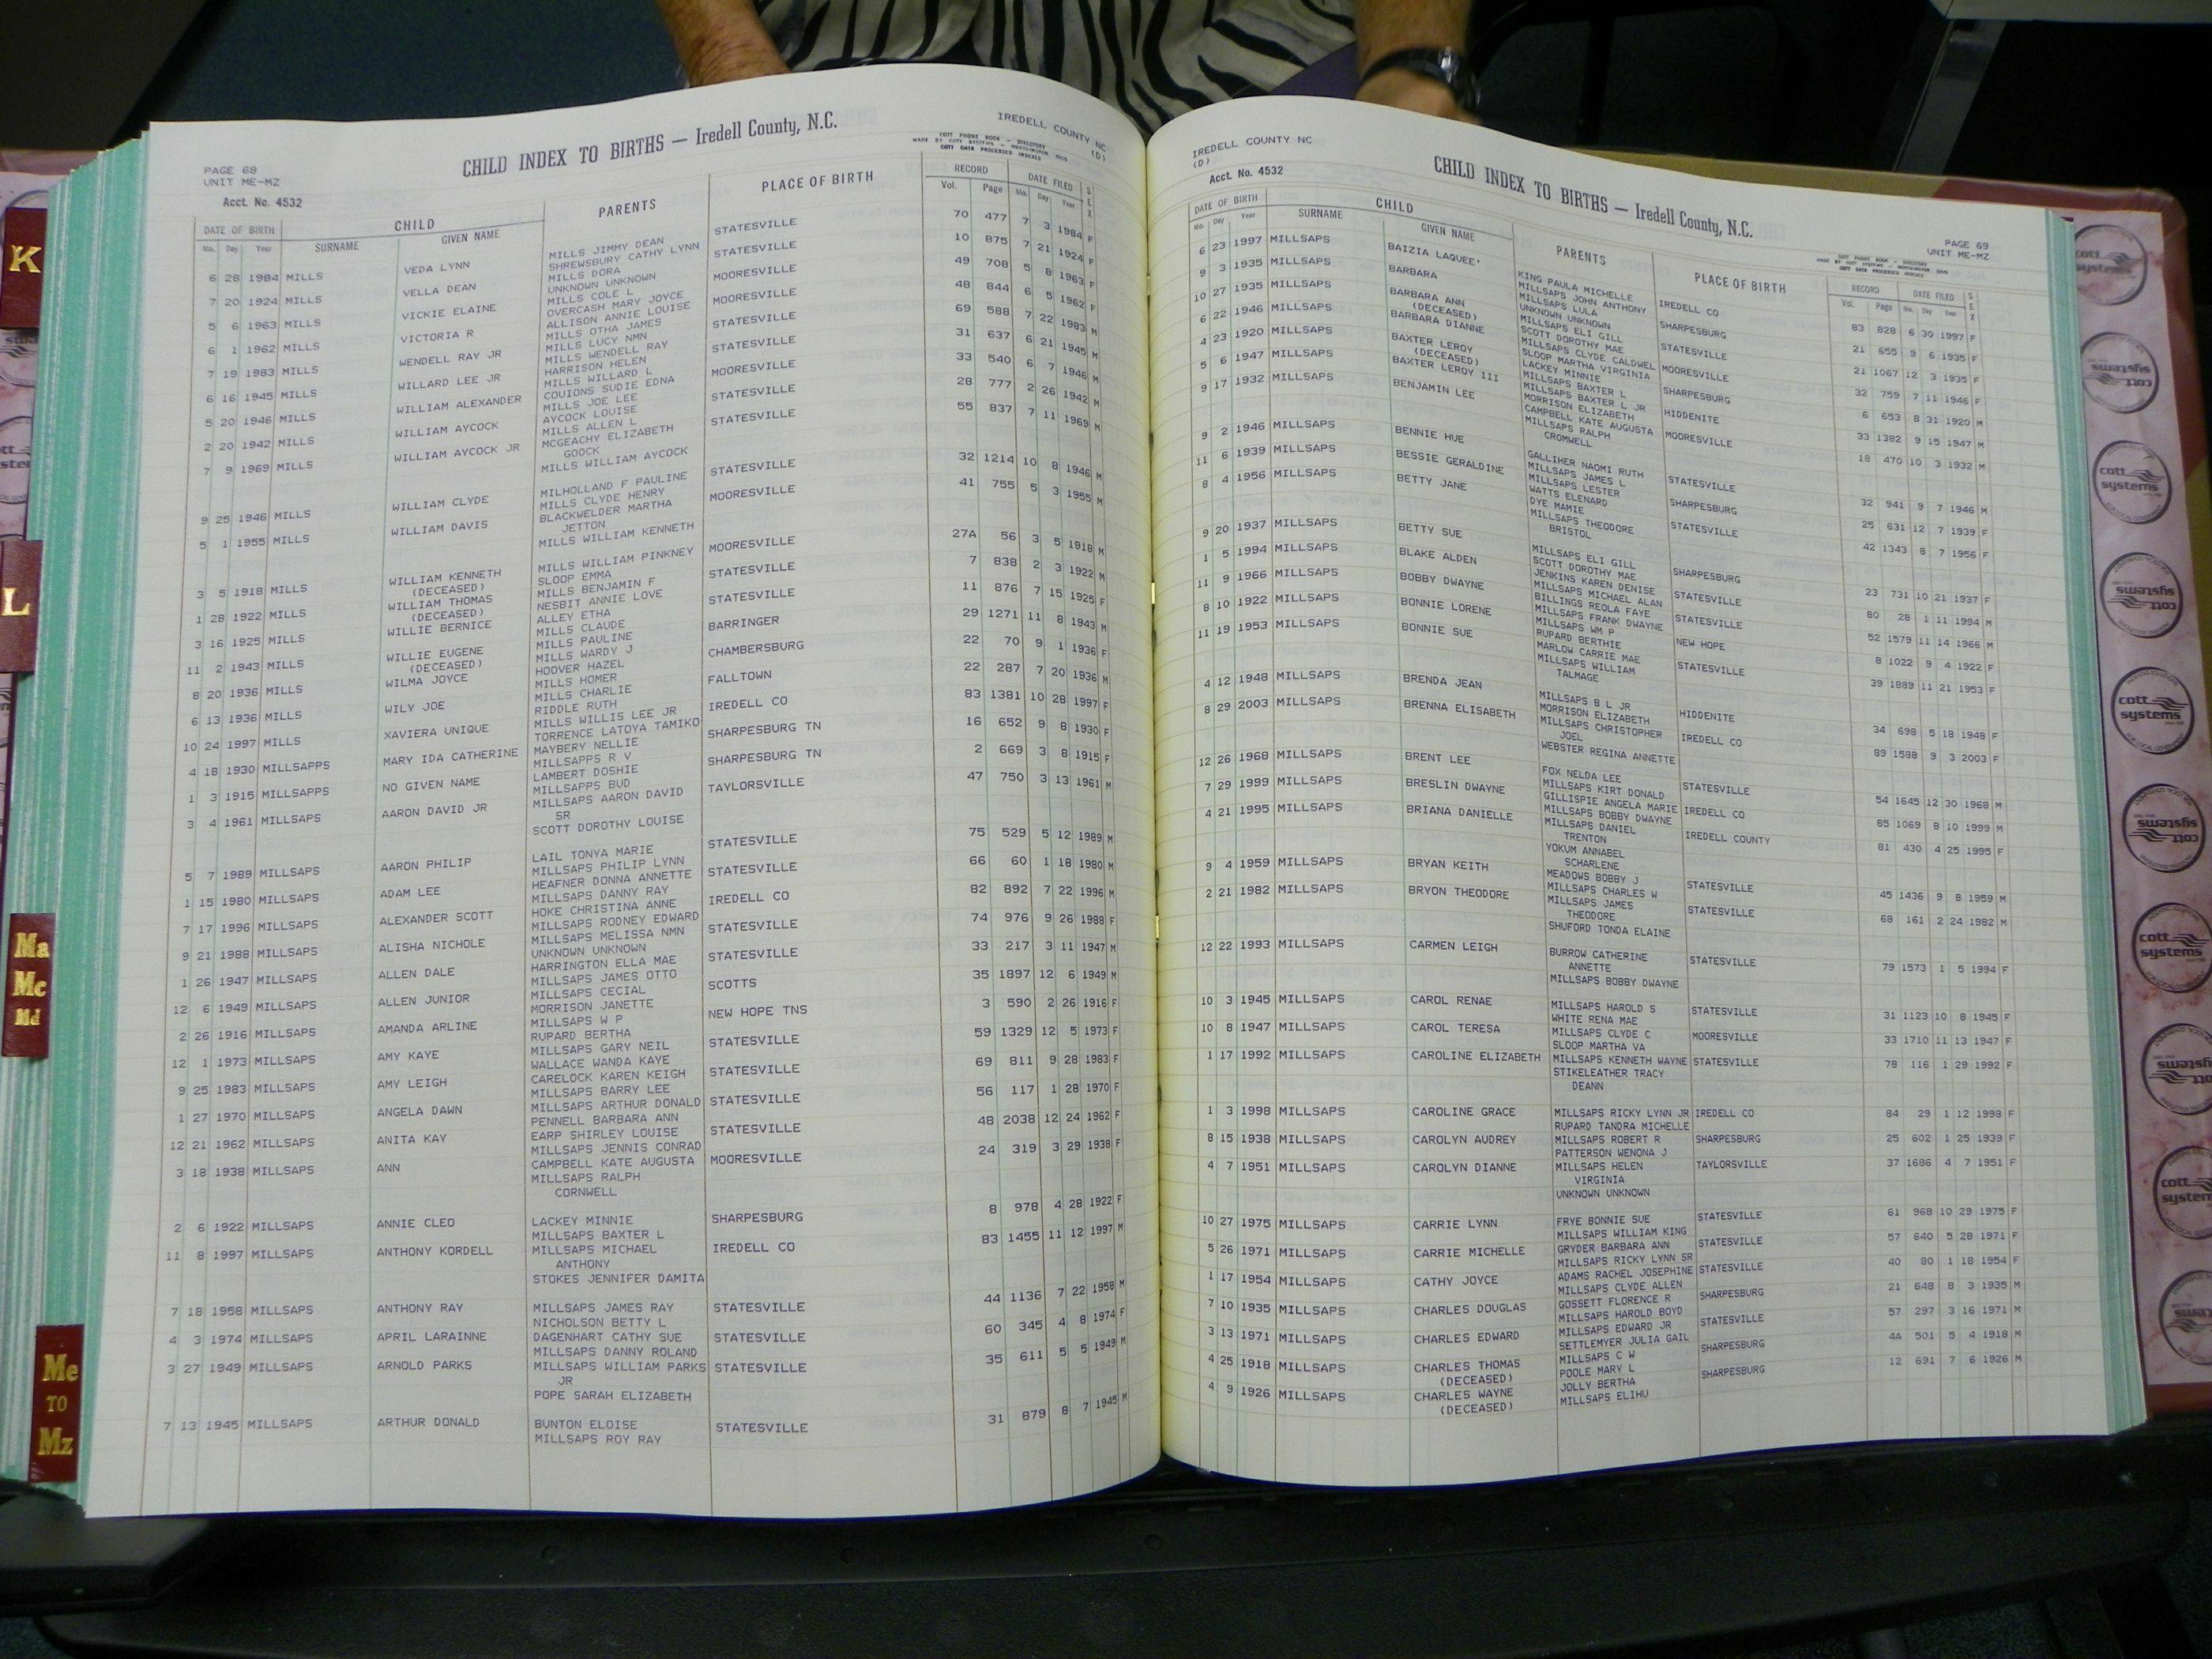 K
L
Ma
Mc
Md
Me
TO
Mz
PAGE 68
UNIT ME-MZ
Acct. No. 4532
CHILD INDEX TO BIRTHS — Iredell County, N.C.
IREDELL COUNTY NC
(D)
DATE OF BIRTH CHILD PARENTS PLACE OF BIRTH RECORD DATE FILED SEX
Mo. Day Year SURNAME GIVEN NAME Vol. Page Mo. Day Year
6 28 1984 MILLS VEDA LYNN MILLS JIMMY DEAN STATESVILLE 70 477 7 3 1984 F
SHREWSBURY CATHY LYNN
7 20 1924 MILLS VELLA DEAN MILLS DORA STATESVILLE 10 875 7 21 1924 F
UNKNOWN UNKNOWN
5 6 1963 MILLS VICKIE ELAINE MILLS COLE L MOORESVILLE 49 708 5 8 1963 F
OVERCASH MARY JOYCE
6 1 1962 MILLS VICTORIA R ALLISON ANNIE LOUISE MOORESVILLE 48 844 6 5 1962 F
MILLS OTHA JAMES
7 19 1983 MILLS WENDELL RAY JR MILLS LUCY NMN STATESVILLE 69 588 7 22 1983 M
MILLS WENDELL RAY
6 16 1945 MILLS WILLARD LEE JR HARRISON HELEN STATESVILLE 31 637 6 21 1945 M
MILLS WILLARD L
5 20 1946 MILLS WILLIAM ALEXANDER COUIONS SUDIE EDNA MOORESVILLE 33 540 6 7 1946 M
MILLS JOE LEE
2 20 1942 MILLS WILLIAM AYCOCK AYCOCK LOUISE STATESVILLE 28 777 2 26 1942 M
MILLS ALLEN L
7 9 1969 MILLS WILLIAM AYCOCK JR MCGEACHY ELIZABETH STATESVILLE 55 837 7 11 1969 M
GOOCK
MILLS WILLIAM AYCOCK
9 25 1946 MILLS WILLIAM CLYDE MILHOLLAND F PAULINE STATESVILLE 32 1214 10 8 1946 M
MILLS CLYDE HENRY
5 1 1955 MILLS WILLIAM DAVIS BLACKWELDER MARTHA MOORESVILLE 41 755 5 3 1955 M
JETTON
MILLS WILLIAM KENNETH
3 5 1918 MILLS WILLIAM KENNETH MILLS WILLIAM PINKNEY MOORESVILLE 27A 56 3 5 1918 M
(DECEASED) SLOOP EMMA
1 28 1922 MILLS WILLIAM THOMAS MILLS BENJAMIN F STATESVILLE 7 838 2 3 1922 M
(DECEASED) NESBIT ANNIE LOVE
3 16 1925 MILLS WILLIE BERNICE ALLEY ETHA STATESVILLE 11 876 7 15 1925 F
MILLS CLAUDE
11 2 1943 MILLS WILLIE EUGENE MILLS PAULINE BARRINGER 29 1271 11 8 1943 M
(DECEASED)
8 20 1936 MILLS WILMA JOYCE MILLS WARDY J CHAMBERSBURG 22 70 9 1 1936 F
HOOVER HAZEL
6 13 1936 MILLS WILY JOE MILLS HOMER FALLTOWN 22 287 7 20 1936 M
MILLS CHARLIE
RIDDLE RUTH
10 24 1997 MILLS XAVIERA UNIQUE MILLS WILLIS LEE JR IREDELL CO 83 1381 10 28 1997 F
TORRENCE LATOYA TAMIKO
4 18 1930 MILLSAPPS MARY IDA CATHERINE MAYBERY NELLIE SHARPESBURG TN 16 652 9 8 1930 F
MILLSAPPS R V
1 3 1915 MILLSAPPS NO GIVEN NAME LAMBERT DOSHIE SHARPESBURG TN 2 669 3 8 1915 F
MILLSAPPS BUD
3 4 1961 MILLSAPS AARON DAVID JR MILLSAPS AARON DAVID TAYLORSVILLE 47 750 3 13 1961 M
SR
SCOTT DOROTHY LOUISE
5 7 1989 MILLSAPS AARON PHILIP LAIL TONYA MARIE STATESVILLE 75 529 5 12 1989 M
MILLSAPS PHILIP LYNN
1 15 1980 MILLSAPS ADAM LEE HEAFNER DONNA ANNETTE STATESVILLE 66 60 1 18 1980 M
MILLSAPS DANNY RAY
7 17 1996 MILLSAPS ALEXANDER SCOTT HOKE CHRISTINA ANNE IREDELL CO 82 892 7 22 1996 M
MILLSAPS RODNEY EDWARD
9 21 1988 MILLSAPS ALISHA NICHOLE MILLSAPS MELISSA NMN STATESVILLE 74 976 9 26 1988 F
UNKNOWN UNKNOWN
1 26 1947 MILLSAPS ALLEN DALE HARRINGTON ELLA MAE STATESVILLE 33 217 3 11 1947 M
MILLSAPS JAMES OTTO
12 6 1949 MILLSAPS ALLEN JUNIOR MILLSAPS CECIAL SCOTTS 35 1897 12 6 1949 M
MORRISON JANETTE
2 26 1916 MILLSAPS AMANDA ARLINE MILLSAPS W P NEW HOPE TNS 3 590 2 26 1916 F
RUPARD BERTHA
12 1 1973 MILLSAPS AMY KAYE MILLSAPS GARY NEIL STATESVILLE 59 1329 12 5 1973 F
WALLACE WANDA KAYE
9 25 1983 MILLSAPS AMY LEIGH CARELOCK KAREN KEIGH STATESVILLE 69 811 9 28 1983 F
MILLSAPS BARRY LEE
1 27 1970 MILLSAPS ANGELA DAWN MILLSAPS ARTHUR DONALD STATESVILLE 56 117 1 28 1970 F
PENNELL BARBARA ANN
12 21 1962 MILLSAPS ANITA KAY EARP SHIRLEY LOUISE STATESVILLE 48 2038 12 24 1962 F
MILLSAPS JENNIS CONRAD
3 18 1938 MILLSAPS ANN CAMPBELL KATE AUGUSTA MOORESVILLE 24 319 3 29 1938 F
MILLSAPS RALPH
CORNWELL
2 6 1922 MILLSAPS ANNIE CLEO LACKEY MINNIE SHARPESBURG 8 978 4 28 1922 F
MILLSAPS BAXTER L
11 8 1997 MILLSAPS ANTHONY KORDELL MILLSAPS MICHAEL IREDELL CO 83 1455 11 12 1997 M
ANTHONY
STOKES JENNIFER DAMITA
7 18 1958 MILLSAPS ANTHONY RAY MILLSAPS JAMES RAY STATESVILLE 44 1136 7 22 1958 M
NICHOLSON BETTY L
4 3 1974 MILLSAPS APRIL LARAINNE DAGENHART CATHY SUE STATESVILLE 60 345 4 8 1974 F
MILLSAPS DANNY ROLAND
3 27 1949 MILLSAPS ARNOLD PARKS MILLSAPS WILLIAM PARKS STATESVILLE 35 611 5 5 1949 M
JR
POPE SARAH ELIZABETH
7 13 1945 MILLSAPS ARTHUR DONALD BUNTON ELOISE STATESVILLE 31 879 8 7 1945 M
MILLSAPS ROY RAY
IREDELL COUNTY NC
(D)
Acct. No. 4532
CHILD INDEX TO BIRTHS — Iredell County, N.C.
PAGE 69
UNIT ME-MZ
DATE OF BIRTH CHILD PARENTS PLACE OF BIRTH RECORD DATE FILED SEX
Mo. Day Year SURNAME GIVEN NAME Vol. Page Mo. Day Year
6 23 1997 MILLSAPS BAIZIA LAQUEE' KING PAULA MICHELLE IREDELL CO 83 828 6 30 1997 F
MILLSAPS JOHN ANTHONY
9 3 1935 MILLSAPS BARBARA MILLSAPS LULA SHARPESBURG 21 655 9 6 1935 F
UNKNOWN UNKNOWN
10 27 1935 MILLSAPS BARBARA ANN MILLSAPS ELI GILL STATESVILLE 21 1067 12 3 1935 F
(DECEASED) SCOTT DOROTHY MAE
6 22 1946 MILLSAPS BARBARA DIANNE MILLSAPS CLYDE CALDWEL MOORESVILLE 32 759 7 11 1946 F
SLOOP MARTHA VIRGINIA
4 23 1920 MILLSAPS BAXTER LEROY LACKEY MINNIE SHARPESBURG 6 653 8 31 1920 M
(DECEASED) MILLSAPS BAXTER L
5 6 1947 MILLSAPS BAXTER LEROY III MILLSAPS BAXTER L JR HIDDENITE 33 1382 9 15 1947 M
MORRISON ELIZABETH
9 17 1932 MILLSAPS BENJAMIN LEE CAMPBELL KATE AUGUSTA MOORESVILLE 18 470 10 3 1932 M
MILLSAPS RALPH
CROMWELL
9 2 1946 MILLSAPS BENNIE HUE GALLIHER NAOMI RUTH STATESVILLE 32 941 9 7 1946 M
MILLSAPS JAMES L
11 6 1939 MILLSAPS BESSIE GERALDINE MILLSAPS LESTER SHARPESBURG 25 631 12 7 1939 F
WATTS ELENARD
8 4 1956 MILLSAPS BETTY JANE DYE MAMIE STATESVILLE 42 1343 8 7 1956 F
MILLSAPS THEODORE
BRISTOL
9 20 1937 MILLSAPS BETTY SUE MILLSAPS ELI GILL SHARPESBURG 23 731 10 21 1937 F
SCOTT DOROTHY MAE
1 5 1994 MILLSAPS BLAKE ALDEN JENKINS KAREN DENISE STATESVILLE 80 28 1 11 1994 M
MILLSAPS MICHAEL ALAN
11 9 1966 MILLSAPS BOBBY DWAYNE BILLINGS REOLA FAYE STATESVILLE 52 1579 11 14 1966 M
MILLSAPS FRANK DWAYNE
8 10 1922 MILLSAPS BONNIE LORENE MILLSAPS WM P NEW HOPE 8 1022 9 4 1922 F
RUPARD BERTHIE
11 19 1953 MILLSAPS BONNIE SUE MARLOW CARRIE MAE STATESVILLE 39 1889 11 21 1953 F
MILLSAPS WILLIAM
TALMAGE
4 12 1948 MILLSAPS BRENDA JEAN MILLSAPS B L JR HIDDENITE 34 698 5 18 1948 F
MORRISON ELIZABETH
8 29 2003 MILLSAPS BRENNA ELISABETH MILLSAPS CHRISTOPHER IREDELL CO 89 1588 9 3 2003 F
JOEL
WEBSTER REGINA ANNETTE
12 26 1968 MILLSAPS BRENT LEE FOX NELDA LEE STATESVILLE 54 1645 12 30 1968 M
MILLSAPS KIRT DONALD
7 29 1999 MILLSAPS BRESLIN DWAYNE GILLISPIE ANGELA MARIE IREDELL CO 85 1069 8 10 1999 M
MILLSAPS BOBBY DWAYNE
4 21 1995 MILLSAPS BRIANA DANIELLE MILLSAPS DANIEL IREDELL COUNTY 81 430 4 25 1995 F
TRENTON
YOKUM ANNABEL
SCHARLENE
9 4 1959 MILLSAPS BRYAN KEITH MEADOWS BOBBY J STATESVILLE 45 1436 9 8 1959 M
MILLSAPS CHARLES W
2 21 1982 MILLSAPS BRYON THEODORE MILLSAPS JAMES STATESVILLE 68 161 2 24 1982 M
THEODORE
SHUFORD TONDA ELAINE
12 22 1993 MILLSAPS CARMEN LEIGH BURROW CATHERINE STATESVILLE 79 1573 1 5 1994 F
ANNETTE
MILLSAPS BOBBY DWAYNE
10 3 1945 MILLSAPS CAROL RENAE MILLSAPS HAROLD S STATESVILLE 31 1123 10 8 1945 F
WHITE RENA MAE
10 8 1947 MILLSAPS CAROL TERESA MILLSAPS CLYDE C MOORESVILLE 33 1710 11 13 1947 F
SLOOP MARTHA VA
1 17 1992 MILLSAPS CAROLINE ELIZABETH MILLSAPS KENNETH WAYNE STATESVILLE 78 116 1 29 1992 F
STIKELEATHER TRACY
DEANN
1 3 1998 MILLSAPS CAROLINE GRACE MILLSAPS RICKY LYNN JR IREDELL CO 84 29 1 12 1998 F
RUPARD TANDRA MICHELLE
8 15 1938 MILLSAPS CAROLYN AUDREY MILLSAPS ROBERT R SHARPESBURG 25 602 1 25 1939 F
PATTERSON WENONA J
4 7 1951 MILLSAPS CAROLYN DIANNE MILLSAPS HELEN TAYLORSVILLE 37 1686 4 7 1951 F
VIRGINIA
UNKNOWN UNKNOWN
10 27 1975 MILLSAPS CARRIE LYNN FRYE BONNIE SUE STATESVILLE 61 968 10 29 1975 F
MILLSAPS WILLIAM KING
5 26 1971 MILLSAPS CARRIE MICHELLE GRYDER BARBARA ANN STATESVILLE 57 640 5 28 1971 F
MILLSAPS RICKY LYNN SR
1 17 1954 MILLSAPS CATHY JOYCE ADAMS RACHEL JOSEPHINE STATESVILLE 40 80 1 18 1954 F
MILLSAPS CLYDE ALLEN
7 10 1935 MILLSAPS CHARLES DOUGLAS GOSSETT FLORENCE R SHARPESBURG 21 648 8 3 1935 M
MILLSAPS HAROLD BOYD
3 13 1971 MILLSAPS CHARLES EDWARD MILLSAPS EDWARD JR STATESVILLE 57 297 3 16 1971 M
SETTLEMYER JULIA GAIL
4 25 1918 MILLSAPS CHARLES THOMAS MILLSAPS C W SHARPESBURG 4A 501 5 4 1918 M
(DECEASED) POOLE MARY L
4 9 1926 MILLSAPS CHARLES WAYNE JOLLY BERTHA SHARPESBURG 12 691 7 6 1926 M
(DECEASED) MILLSAPS ELIHU
cott
systems
cott
systems
cott
systems